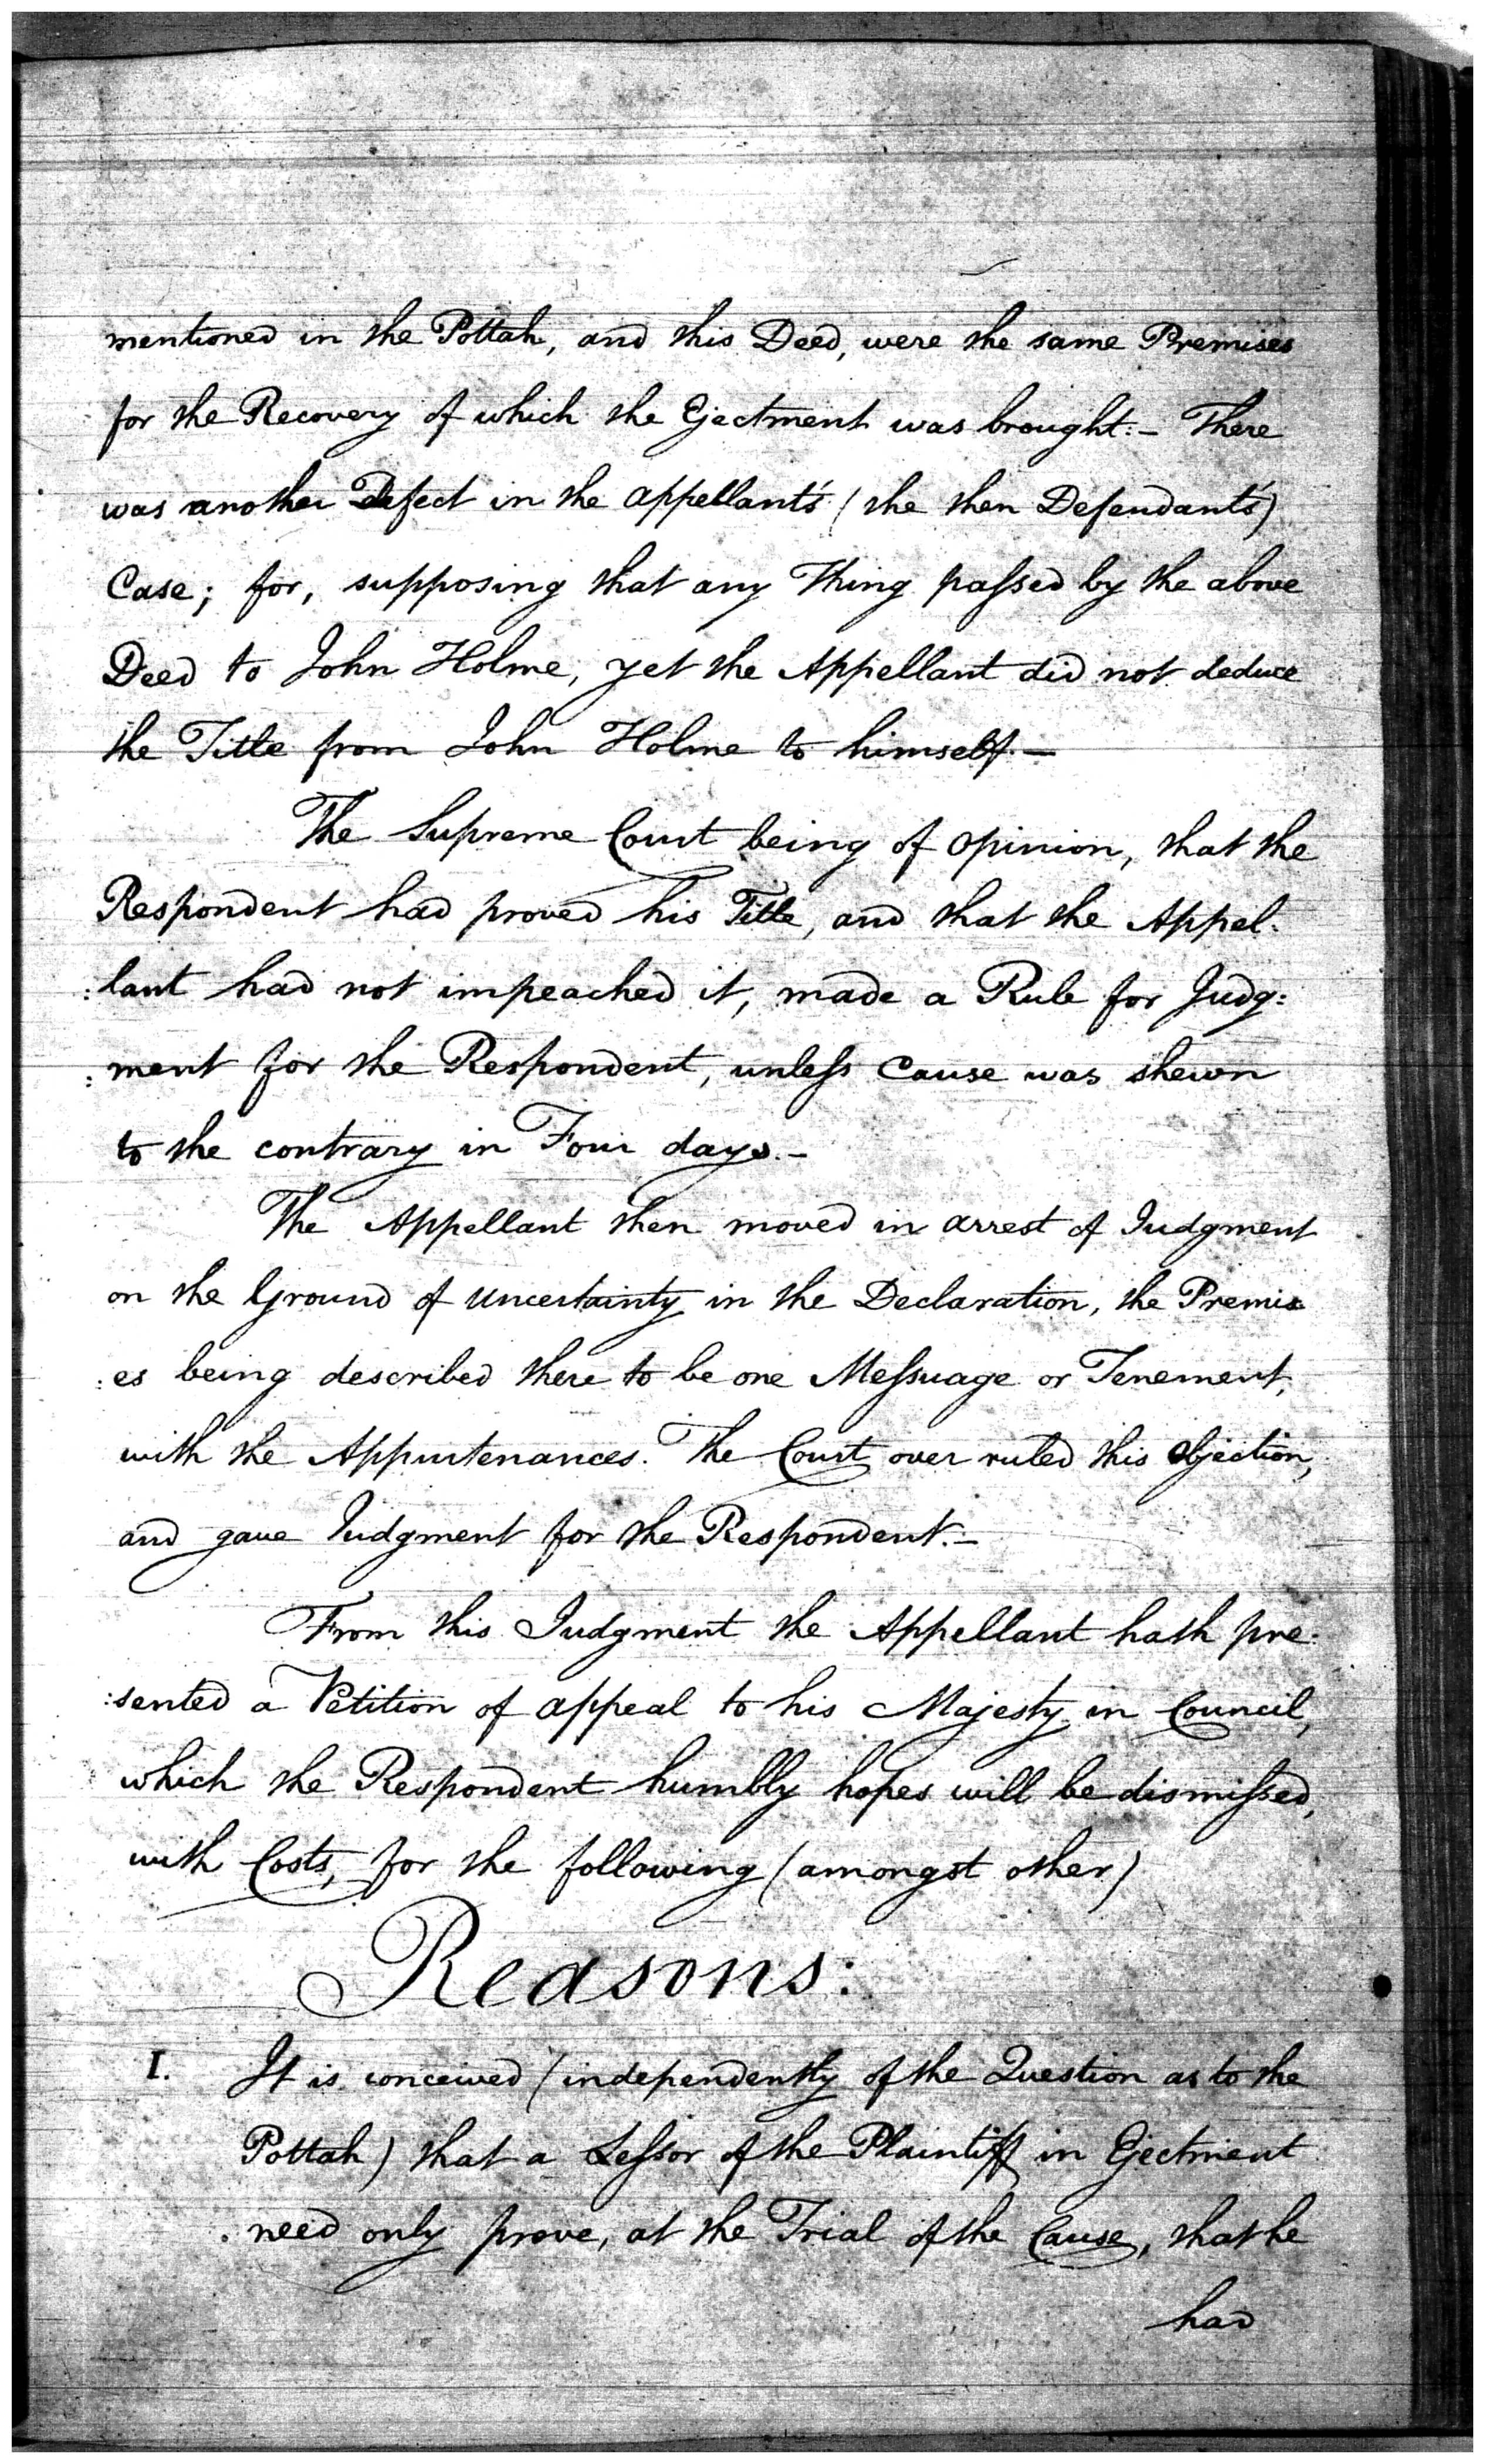 mentioned in the Pottah, and this Deed, were the same Premises
for the Recovery of which the Ejectment was brought:– There
was another Defect in the appellant's (the then Defendant's)
Case; for, supposing that any Thing paſsed by the above
Deed to John Holme, yet the Appellant did not deduce
the Title from John Holme to himself.–
The Supreme Court being of opinion, that the
Respondent had proved his Title, and that the Appel:
:lant had not impeached it, made a Rule for Judg:
:ment for the Respondent, unleſs Cause was shewn
to the contrary in Four days.–
The Appellant then moved in arrest of Judgment
on the Ground of uncertainty in the Declaration, the Premis
:es being described there to be one Meſsuage or Tenement,
with the Appurtenances. The Court over ruled this objection,
and gave Judgment for the Respondent.–
From this Judgment the Appellant hath pre:
:sented a Petition of appeal to his Majesty in Council,
which the Respondent humbly hopes will be dismiſsed,
with Costs, for the following (amongst other)
Reasons:
I. It is conceived (independently of the Question as to the
Pottah) that a Leſsor of the Plaintiff in Ejectment
need only prove, at the Trial of the Cause, that he
had